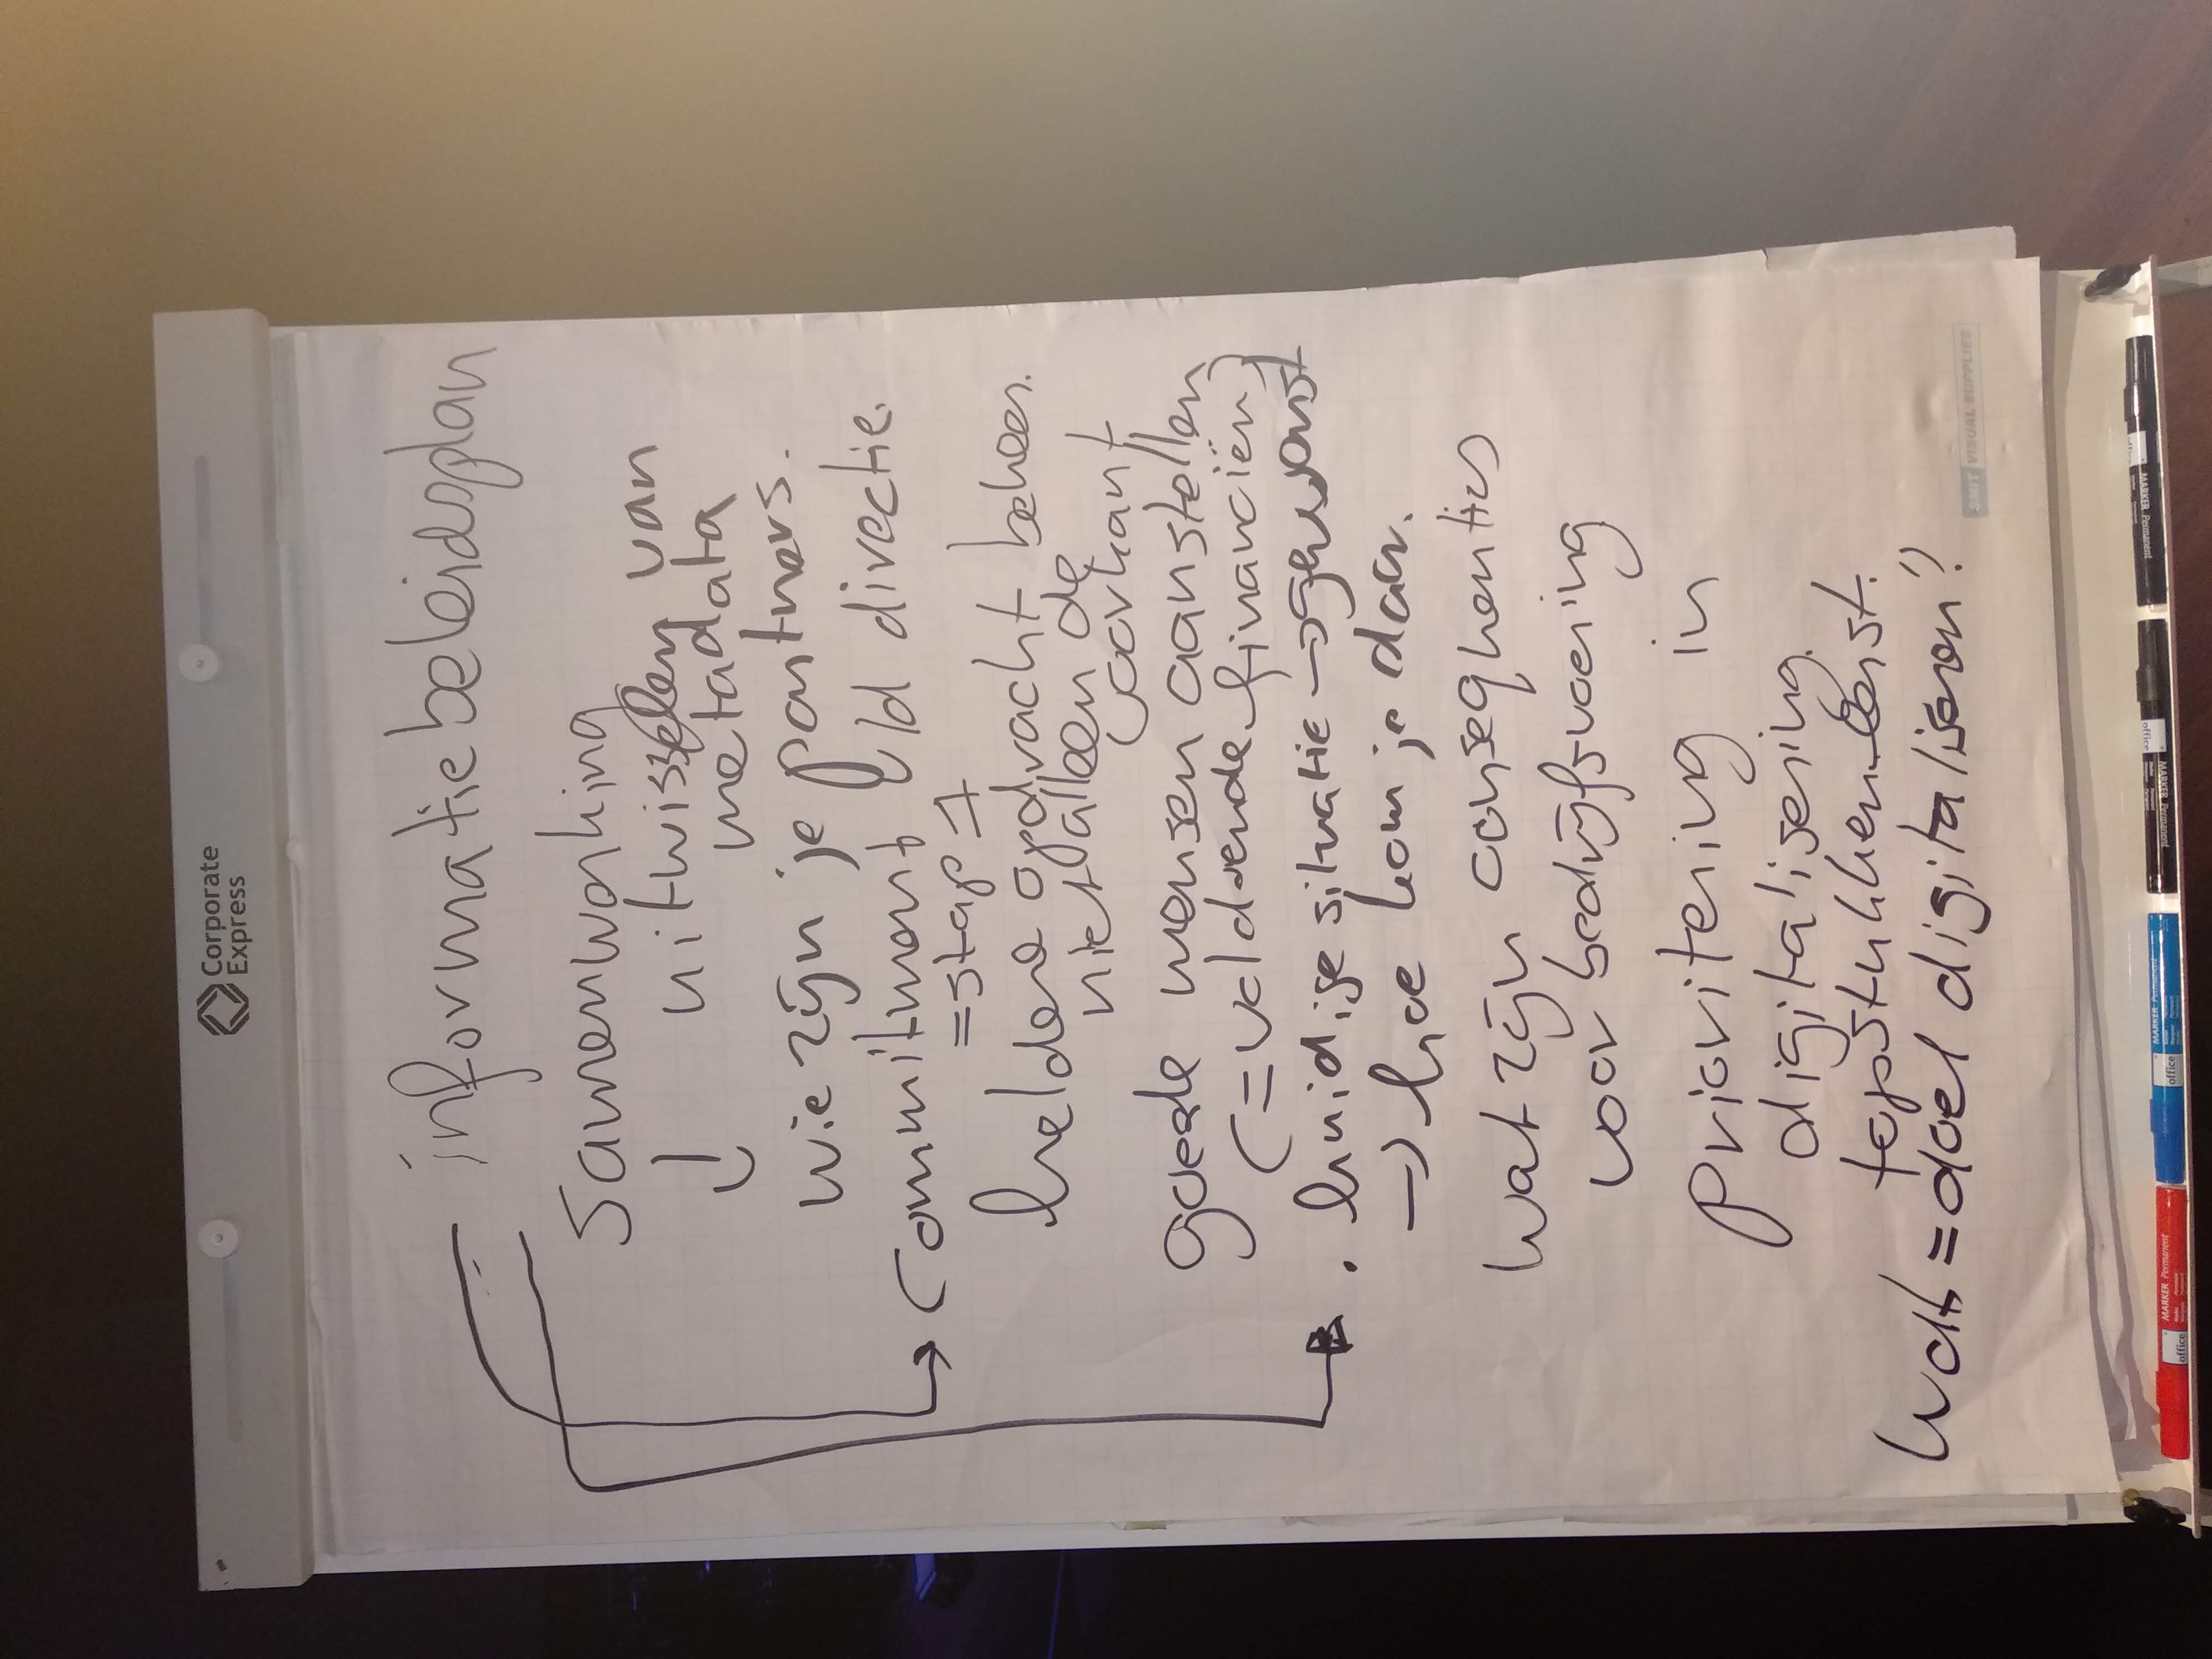 Corporate
Express
informatiebeleidsplan
Samenwerking
↳ uitwisselen van
metadata
wie zijn je partners.
Commitment v/d directie.
= stap 1
heldere opdracht beheer.
niet alleen de
voorkant
goede mensen aanstellen
(= voldoende financiën)
• huidige situatie → gewenst
→ hoe kom je daar.
wat zijn consequenties
voor bedrijfsvoering
prioritering in
digitalisering.
topstukken eerst.
wat = doel digitaliseren?
SMIT VISUAL SUPPLIES
MARKER Permanent
office
MARKER Permanent
office
MARKER Permanent
office
MARKER Permanent
office